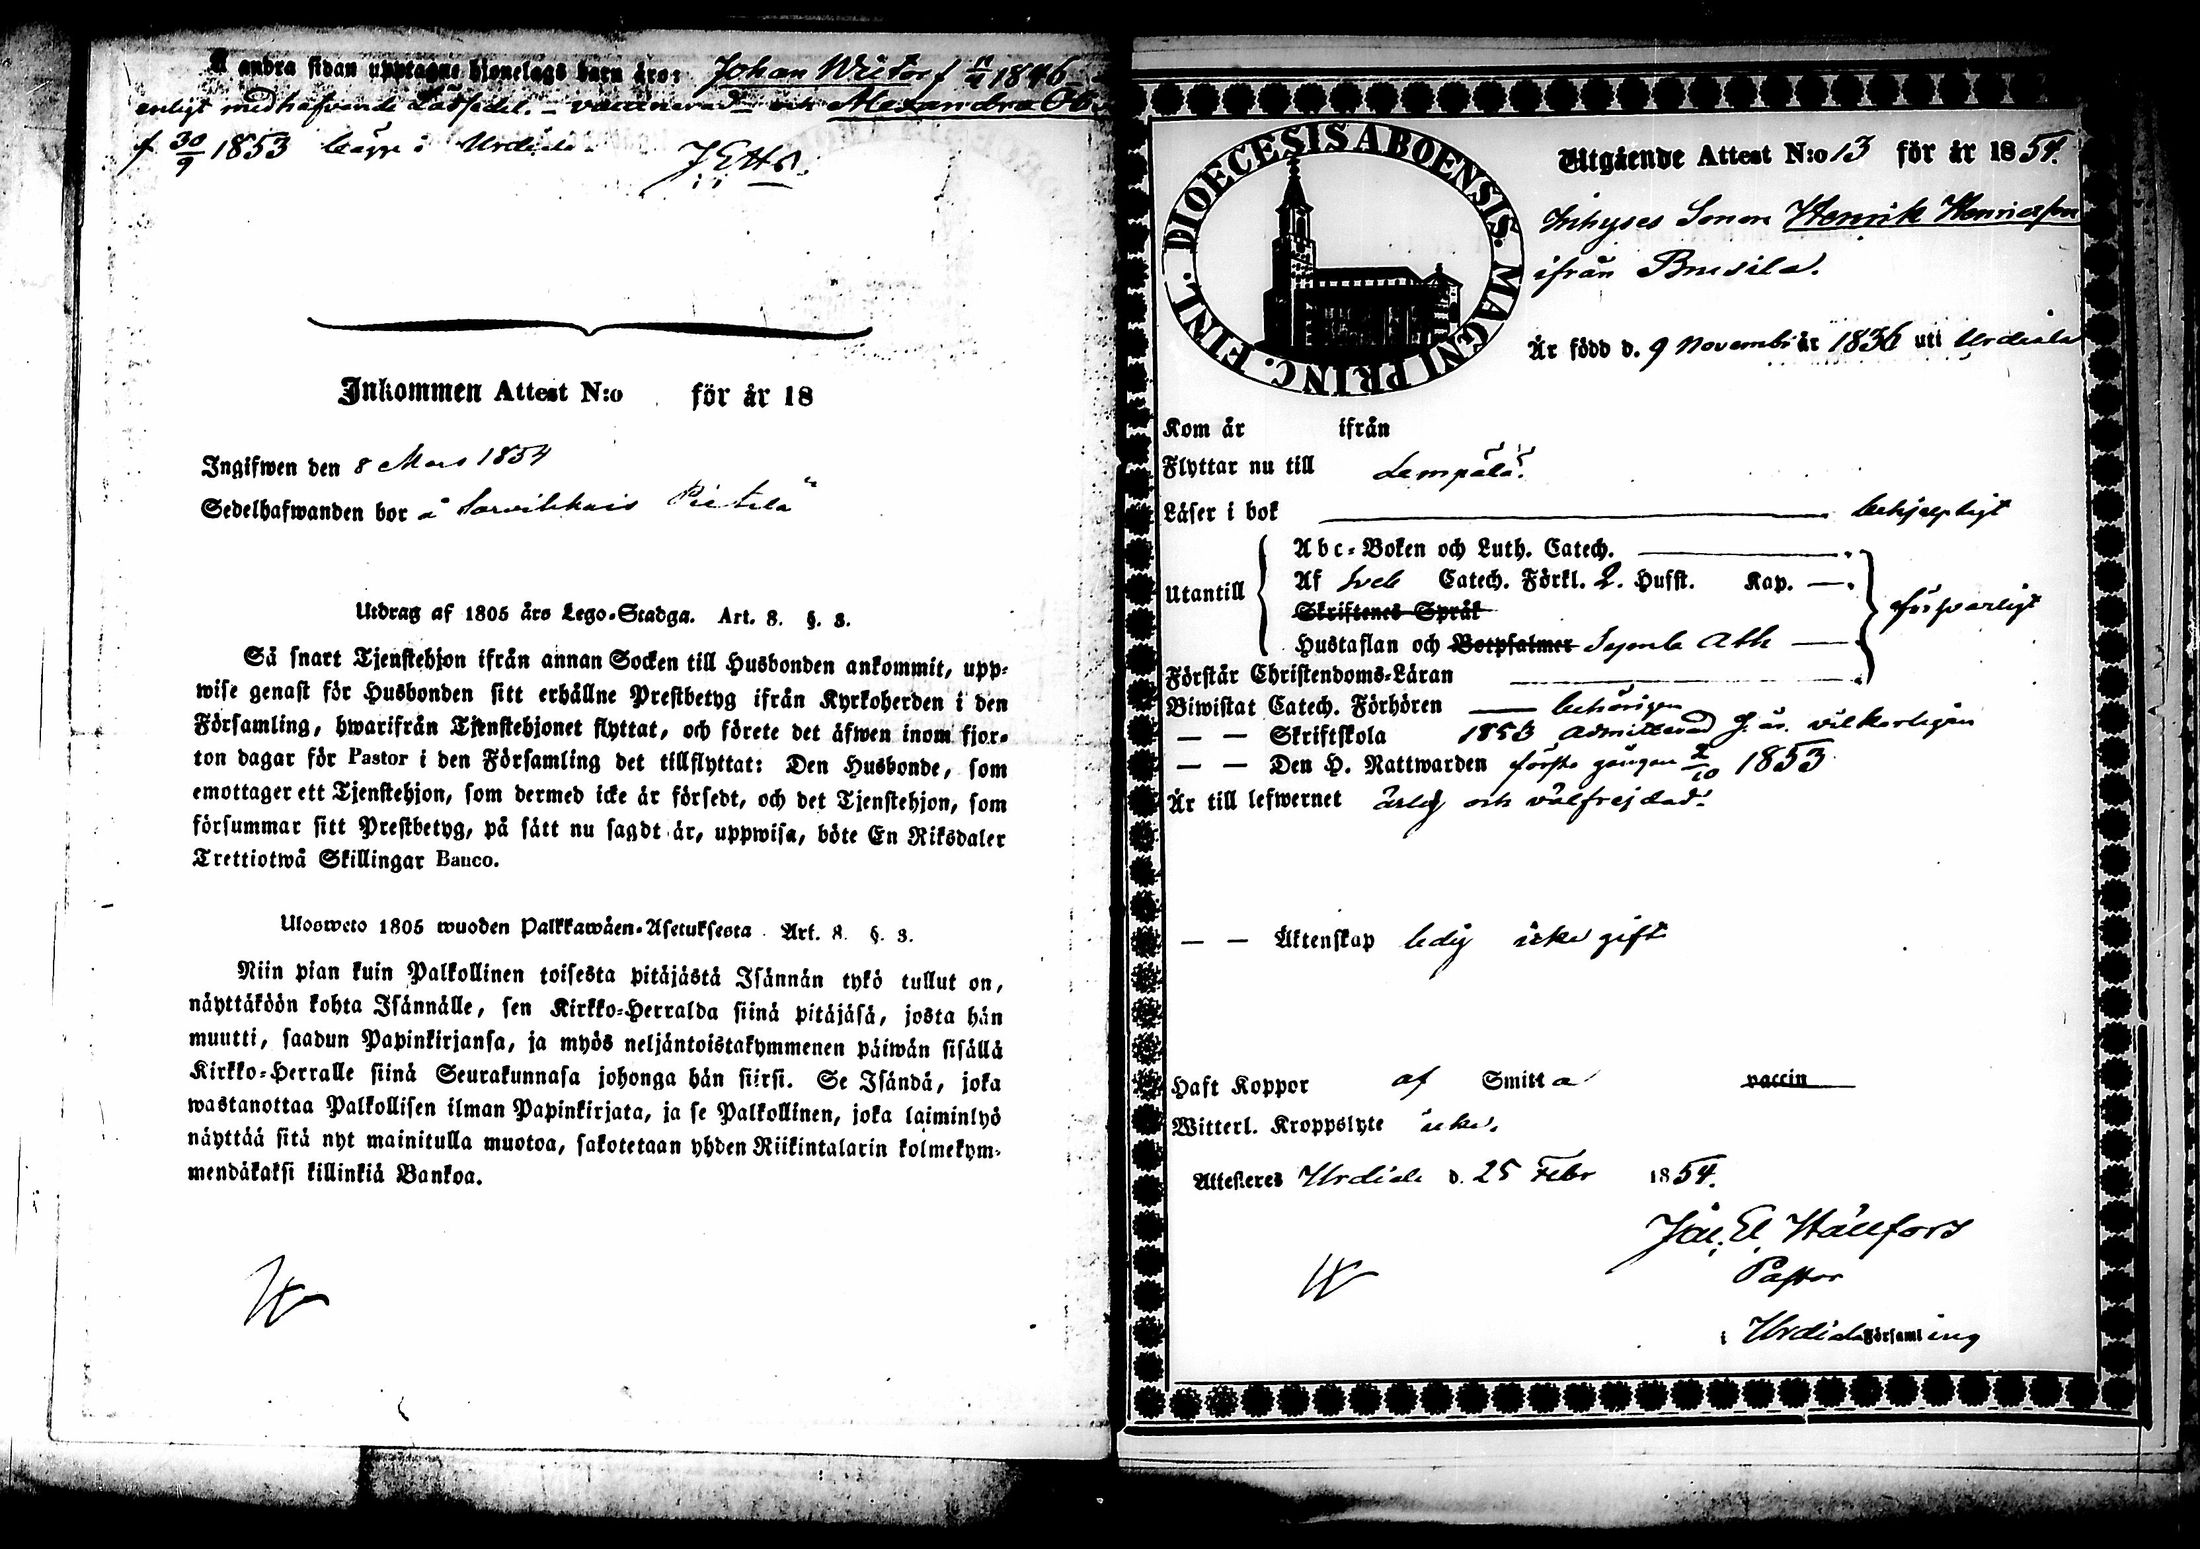 Å andra sidan upptagne hjonelags barn äro: Johan Wictor f 1846
enligt medhafvande Lässedel. – vaccinerad – och Alexandra
f 30/9 1853 bägge i Urdiala.
Inkommen Attest N:o för år 18
Ingifwen den 8 Mars 1854
Sedelhafwanden bor å Pietilä
Utdrag af 1805 års Lego-Stadga. Art. 8. §. 3.
Så snart Tjenstehjon ifrån annan Socken till Husbonden ankommit, upp-
wise genast för Husbonden sitt erhållne Prestbetyg ifrån Kyrkoherden i den
Församling, hwarifrån Tjenstehjonet flyttat, och förete det äfwen inom fjor-
ton dagar för Pastor i den Församling det tillflyttat: Den Husbonde, som
emottager ett Tjenstehjon, som dermed icke är försedt, och det Tjenstehjon, som
försummar sitt Prestbetyg, på sätt nu sagdt är, uppwisa, böte En Riksdaler
Trettiotwå Skillingar Banco.
Ulosweto 1805 wuoden Palkkawäen-Asetuksesta Art. 8. §. 3.
Niin pian kuin Palkollinen toisesta pitäjästä Isännän tykö tullut on,
näyttäköön kohta Isännälle, sen Kirkko-Herralda siinä pitäjäsä, josta hän
muutti, saadun Papinkirjansa, ja myös neljäntoistakymmenen päiwän sisällä
Kirkko-Herralle siinä Seurakunnasa johonga hän siirsi. Se Isändä, joka
wastanottaa Palkollisen ilman Papinkirjata, ja se Palkollinen, joka laiminlyö
näyttää sitä nyt mainitulla muotoa, sakotetaan yhden Riikintalarin kolmekym-
mendäkaksi killinkiä Bankoa.
DIOECESIS ABOENSIS. MAGNI PRINC. FINL.
Utgående Attest N:o 13 för år 1854.
Inhyses Sonen Henrik Henricsson
ifrån Brusila.
Är född d. 9 Novemb: år 1836 uti Urdiala
Kom år ifrån
Flyttar nu till Lempälä.
Läser i bok behjelpligt
Utantill
Abc-Boken och Luth. Catech.
Af Sveb Catech. Förkl. 2. Hufst. Kap. —.
Skriftenes Språk
Hustaflan och Botpsalmer Symb Ath
försvarligt
Förstår Christendoms-Läran
Biwistat Catech. Förhören behörigen
— — Skriftskola 1853 admitterad
— — Den H. Nattwarden första gången 2/10 1853
Är till lefwernet ärlig och välfrejdad.
— — Äktenskap ledig icke gift
Haft Koppor af Smitta vaccin
Witterl. Kroppslyte icke.
Attesteres Urdiala d. 25 Febr 1854.
Hällfors
Pastor
i Urdiala Församling